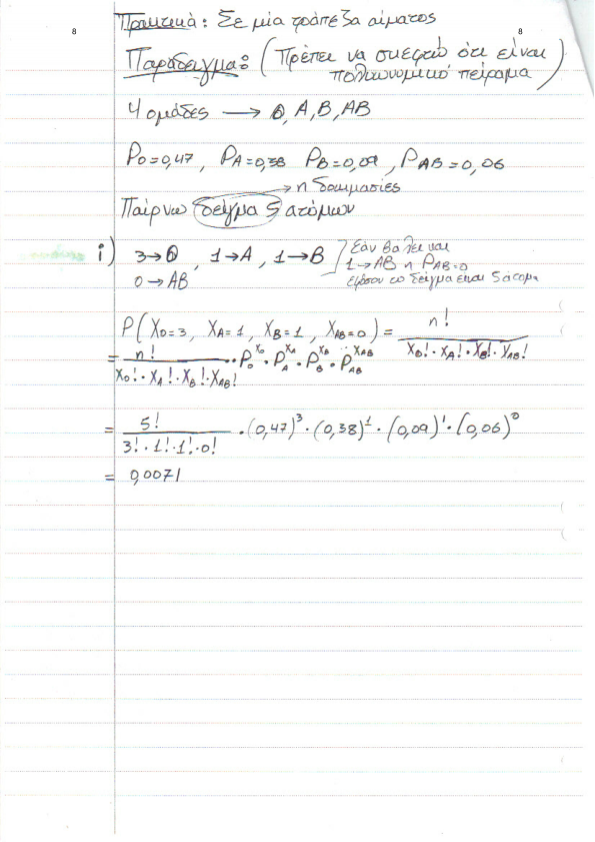 8
8
Πρακτικά: Σε μία τράπεζα αίματος
Παράδειγμα: (Πρέπει να σκεφτώ ότι είναι
πολυωνυμικό πείραμα)
4 ομάδες → 0, A, B, AB
P0=0,47, PA=0,38 PB=0,09, PAB=0,06
→ n δοκιμασίες
Παίρνω δείγμα 5 ατόμων
i) 3→0, 1→A, 1→B
0→AB
Εάν βάλει και
1→AB η PAB=0
εφόσον το δείγμα είναι 5 άτομα
P(X0=3, XA=1, XB=1, XAB=0) = n! / X0!·XA!·XB!·XAB!
= n! / X0!·XA!·XB!·XAB! · P0^X0 · PA^XA · PB^XB · PAB^XAB
= 5! / 3!·1!·1!·0! · (0,47)^3 · (0,38)^1 · (0,09)^1 · (0,06)^0
= 0,0071